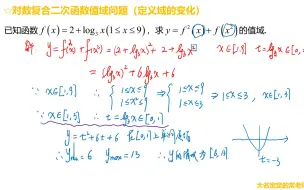 ☆对数复合二次函数值域问题（定义域的变化）
已知函数 f(x) = 2 + log₃ x (1 ≤ x ≤ 9)，求 y = f²(x) + f(x²) 的值域.
解 y = f²(x) + f(x²) = (2 + log₃x)² + 2 + log₃x² x∈[1,9] t = log₃x∈[0,
= (log₃x)² + 6log₃x + 6
∵ x∈[1,9] ∴ { 1≤x≤9 1≤x²≤9 ⇒ { 1≤x≤9 1≤x≤3 ⇒ 1≤x≤3, x∈[1,3]
∵ x∈[1,3] ∴ t = log₃x∈[0,1]
y = t² + 6t + 6 在[0,1]上单调递增
∴ y min = 6 y max = 13 ∴ y的值域为[6,13] t = -3